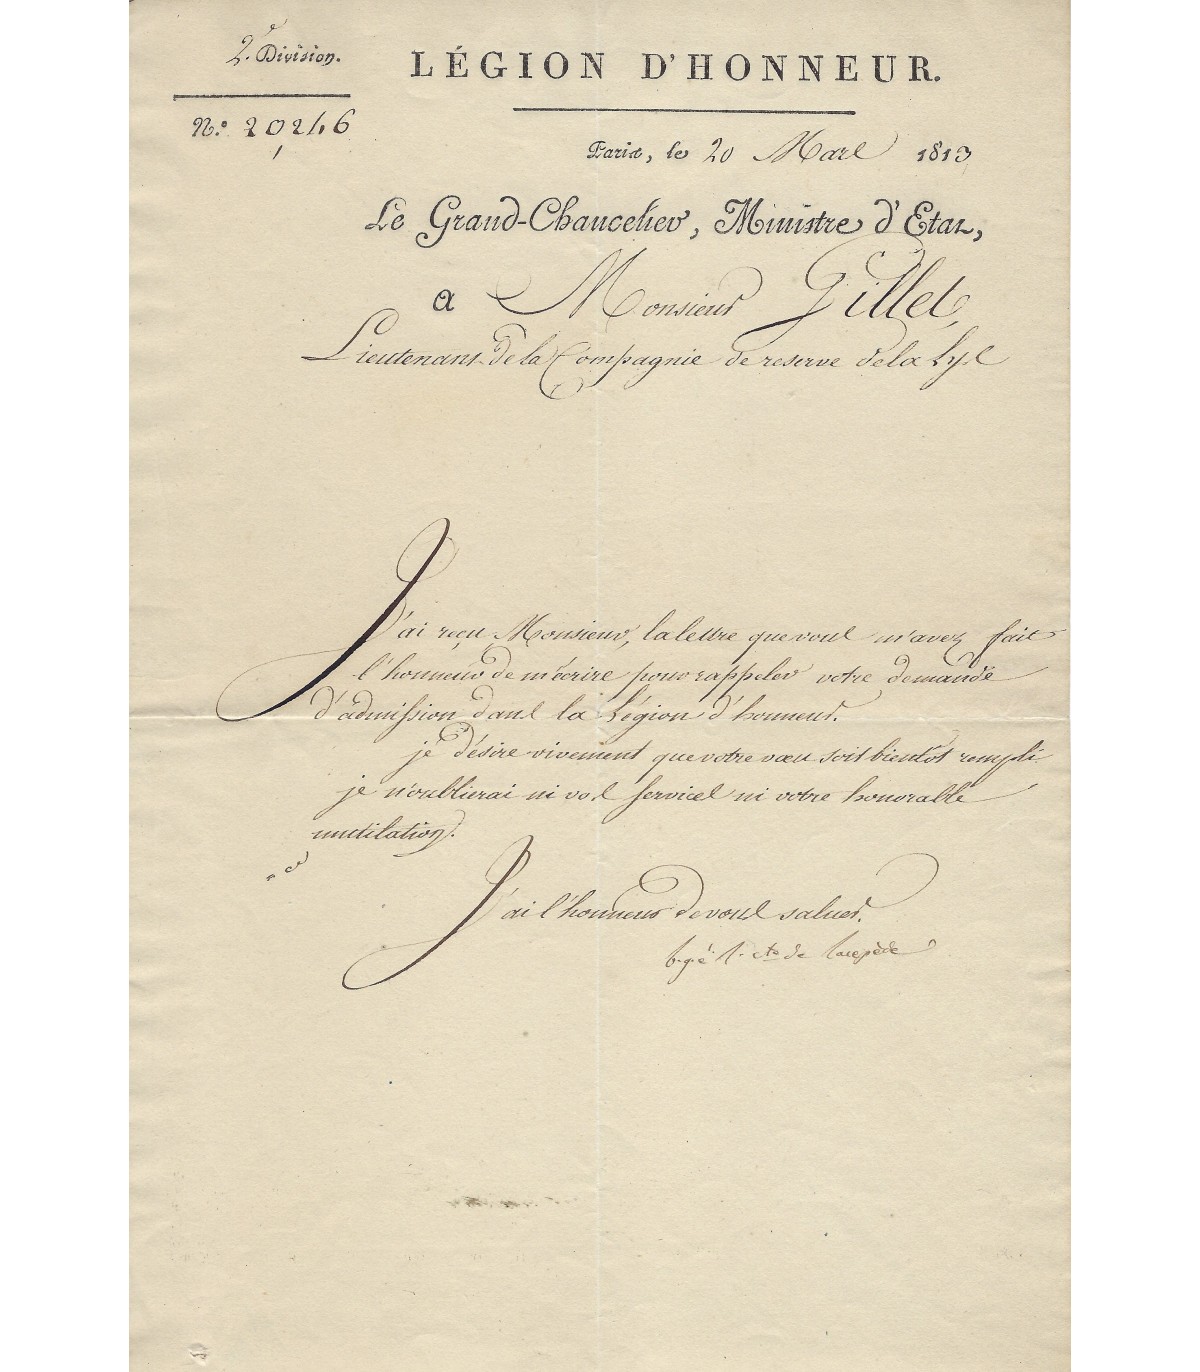 2e Division.
LÉGION D'HONNEUR.
N.º 20246
Paris, le 20 Mars 1813
Le Grand-Chancelier, Ministre d'Etat,
a Monsieur Gillet,
Lieutenant de la Compagnie de reserve de la Lys
J'ai reçu Monsieur, la lettre que vous m'avez fait
l'honneur de m'écrire pour rappeler votre demande
d'admission dans la Légion d'honneur.
je désire vivement que votre vœu soit bientôt rempli.
je n'oublierai ni vos services ni votre honorable
mutilation.
J'ai l'honneur de vous saluer.
b.g.é. l. cte de lacepède